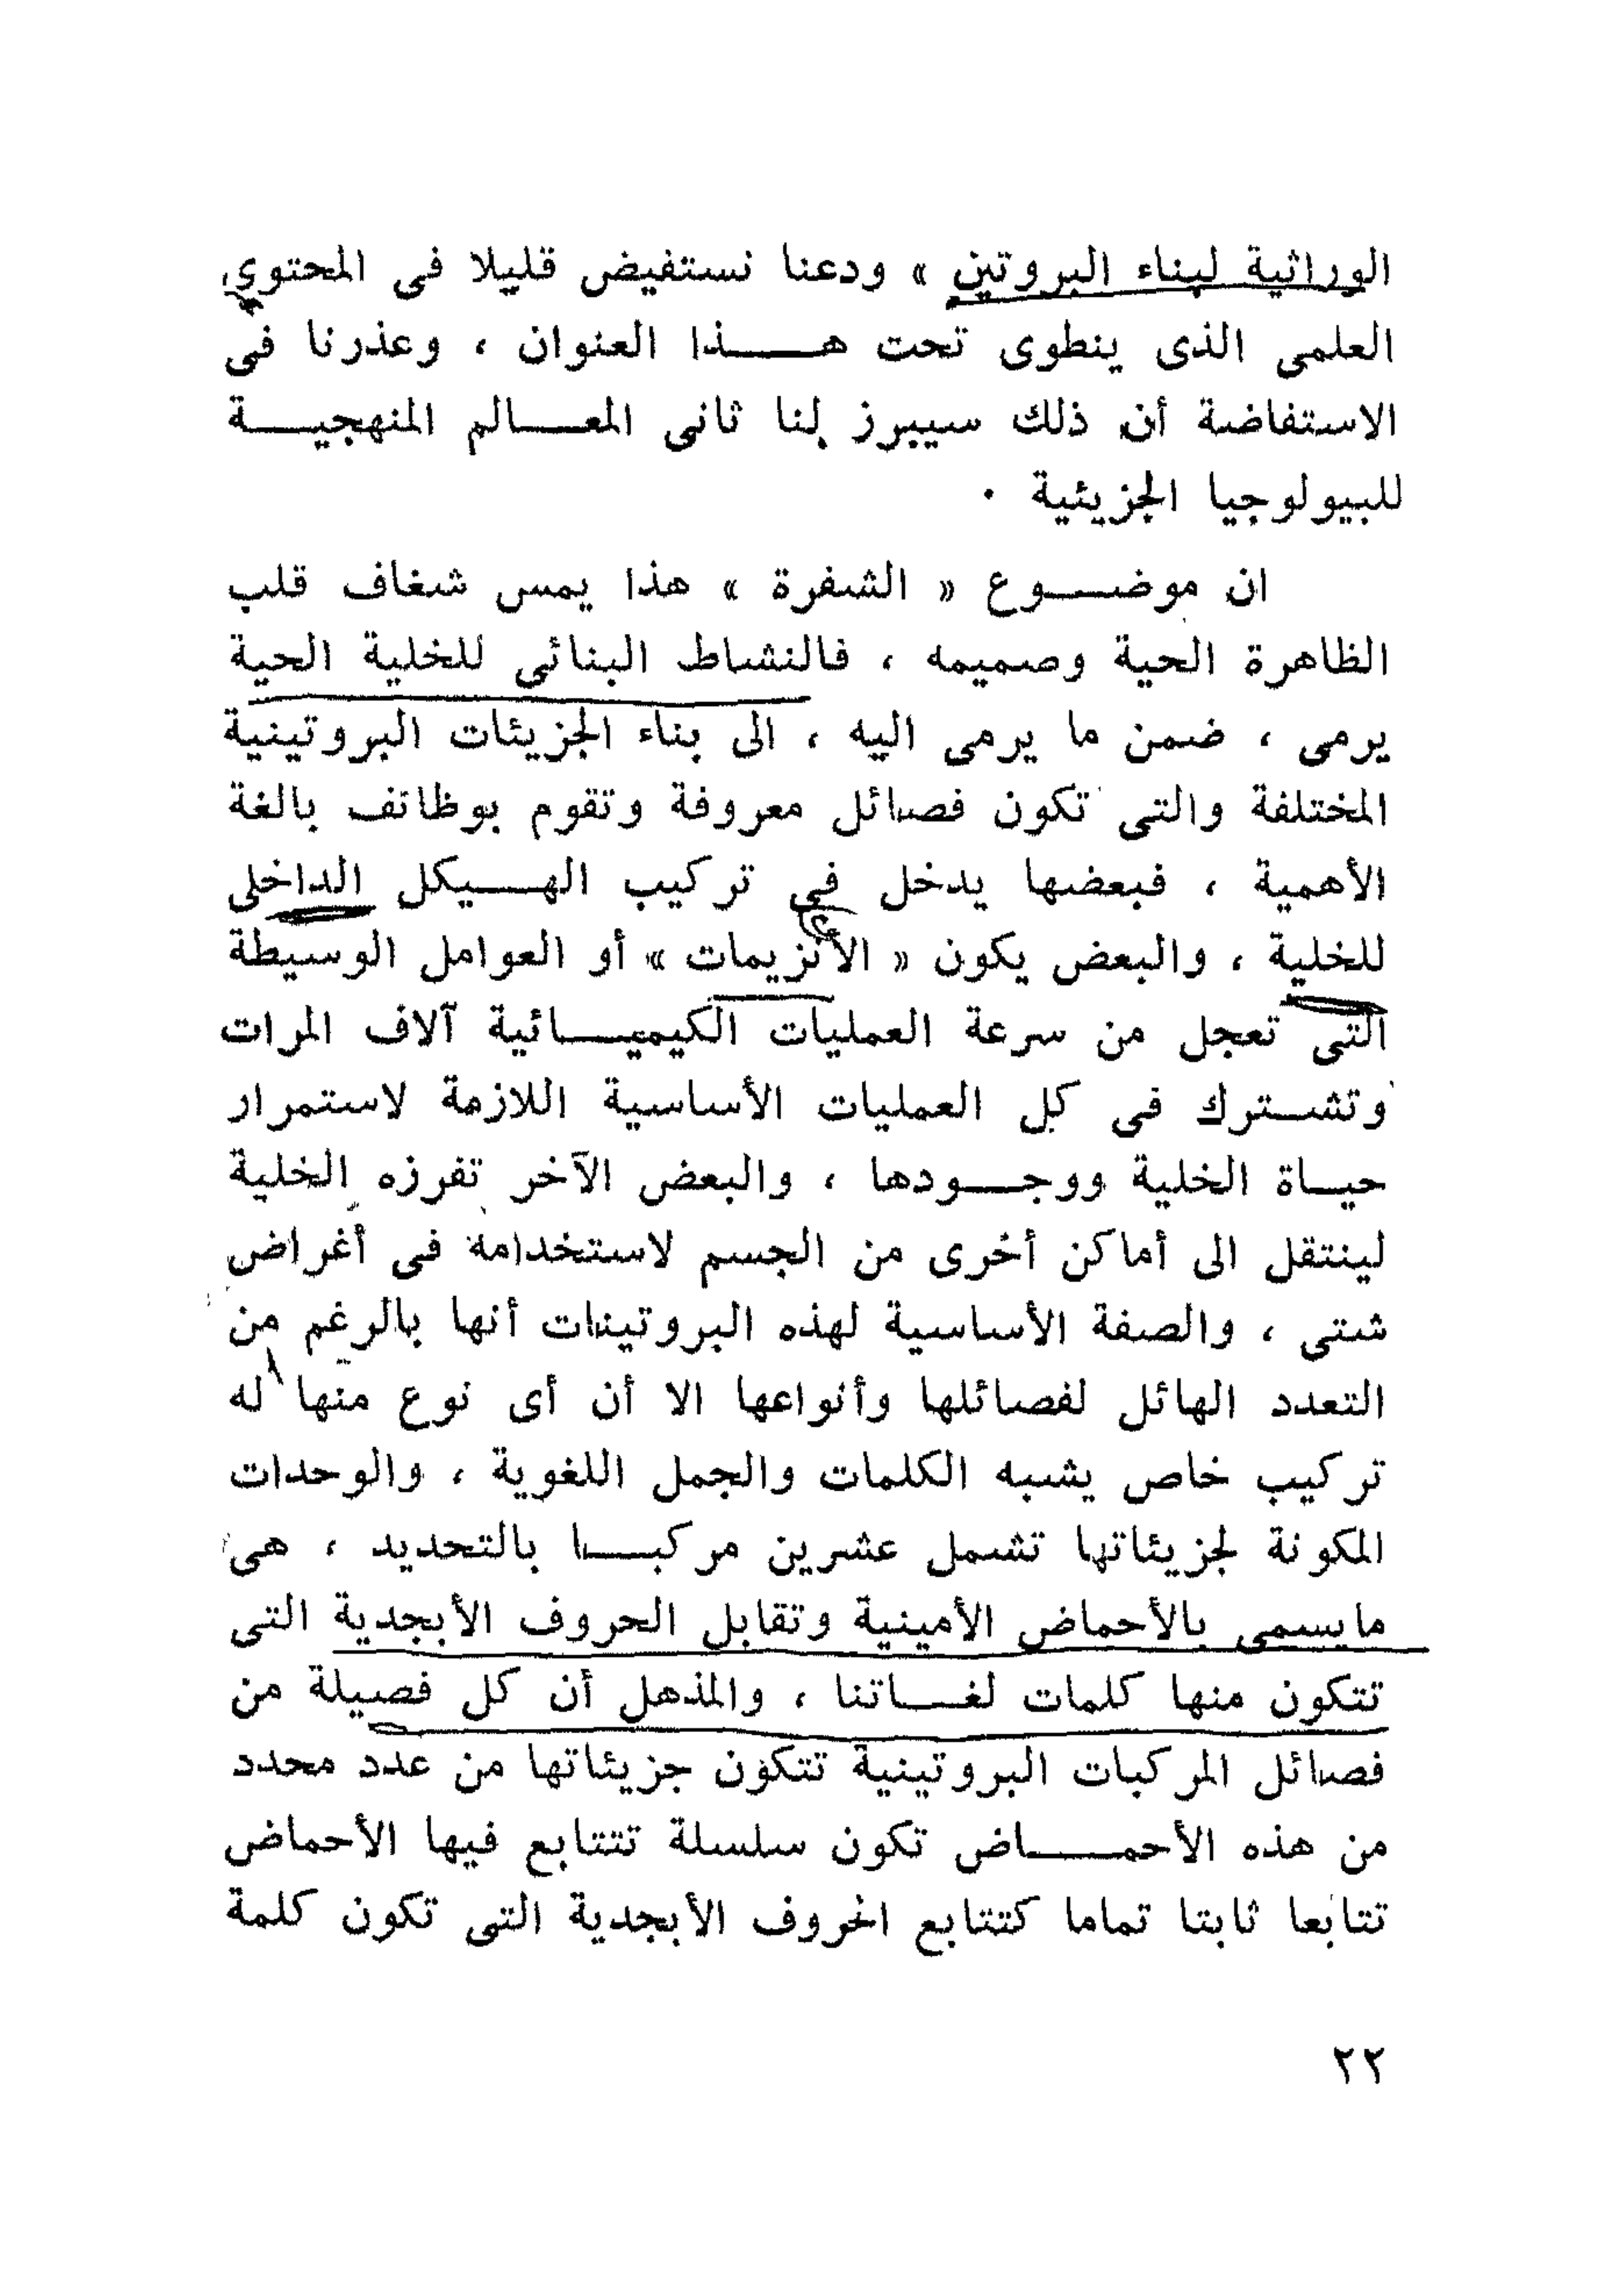 الوراثية لبناء البروتين » ودعنا نستفيض قليلا فى المحتوى
العلمى الذى ينطوى تحت هــــذا العنوان ، وعذرنا فى
الاستفاضة أن ذلك سيبرز لنا ثانى المعــالم المنهجيــة
للبيولوجيا الجزيئية ٠
ان موضـــوع « الشفرة » هذا يمس شغاف قلب
الظاهرة الحية وصميمه ، فالنشاط البنائى للخلية الحية
يرمى ، ضمن ما يرمى اليه ، الى بناء الجزيئات البروتينية
المختلفة والتى تكون فصائل معروفة وتقوم بوظائف بالغة
الأهمية ، فبعضها يدخل فى تركيب الهـــيكل الداخلى
للخلية ، والبعض يكون « الأنزيمات » أو العوامل الوسيطة
التى تعجل من سرعة العمليات الكيميـــائية آلاف المرات
وتشــترك فى كل العمليات الأساسية اللازمة لاستمرار
حيــاة الخلية ووجـــودها ، والبعض الآخر تفرزه الخلية
لينتقل الى أماكن أخرى من الجسم لاستخدامه فى أغراض
شتى ، والصفة الأساسية لهذه البروتينات أنها بالرغم من
التعدد الهائل لفصائلها وأنواعها الا أن أى نوع منها له
تركيب خاص يشبه الكلمات والجمل اللغوية ، والوحدات
المكونة لجزيئاتها تشمل عشرين مركبــا بالتحديد ، هى
مايسمى بالأحماض الأمينية وتقابل الحروف الأبجدية التى
تتكون منها كلمات لغـــاتنا ، والمذهل أن كل فصيلة من
فصائل المركبات البروتينية تتكون جزيئاتها من عدد محدد
من هذه الأحمـــاض تكون سلسلة تتتابع فيها الأحماض
تتابعا ثابتا تماما كتتابع الحروف الأبجدية التى تكون كلمة
٢٢